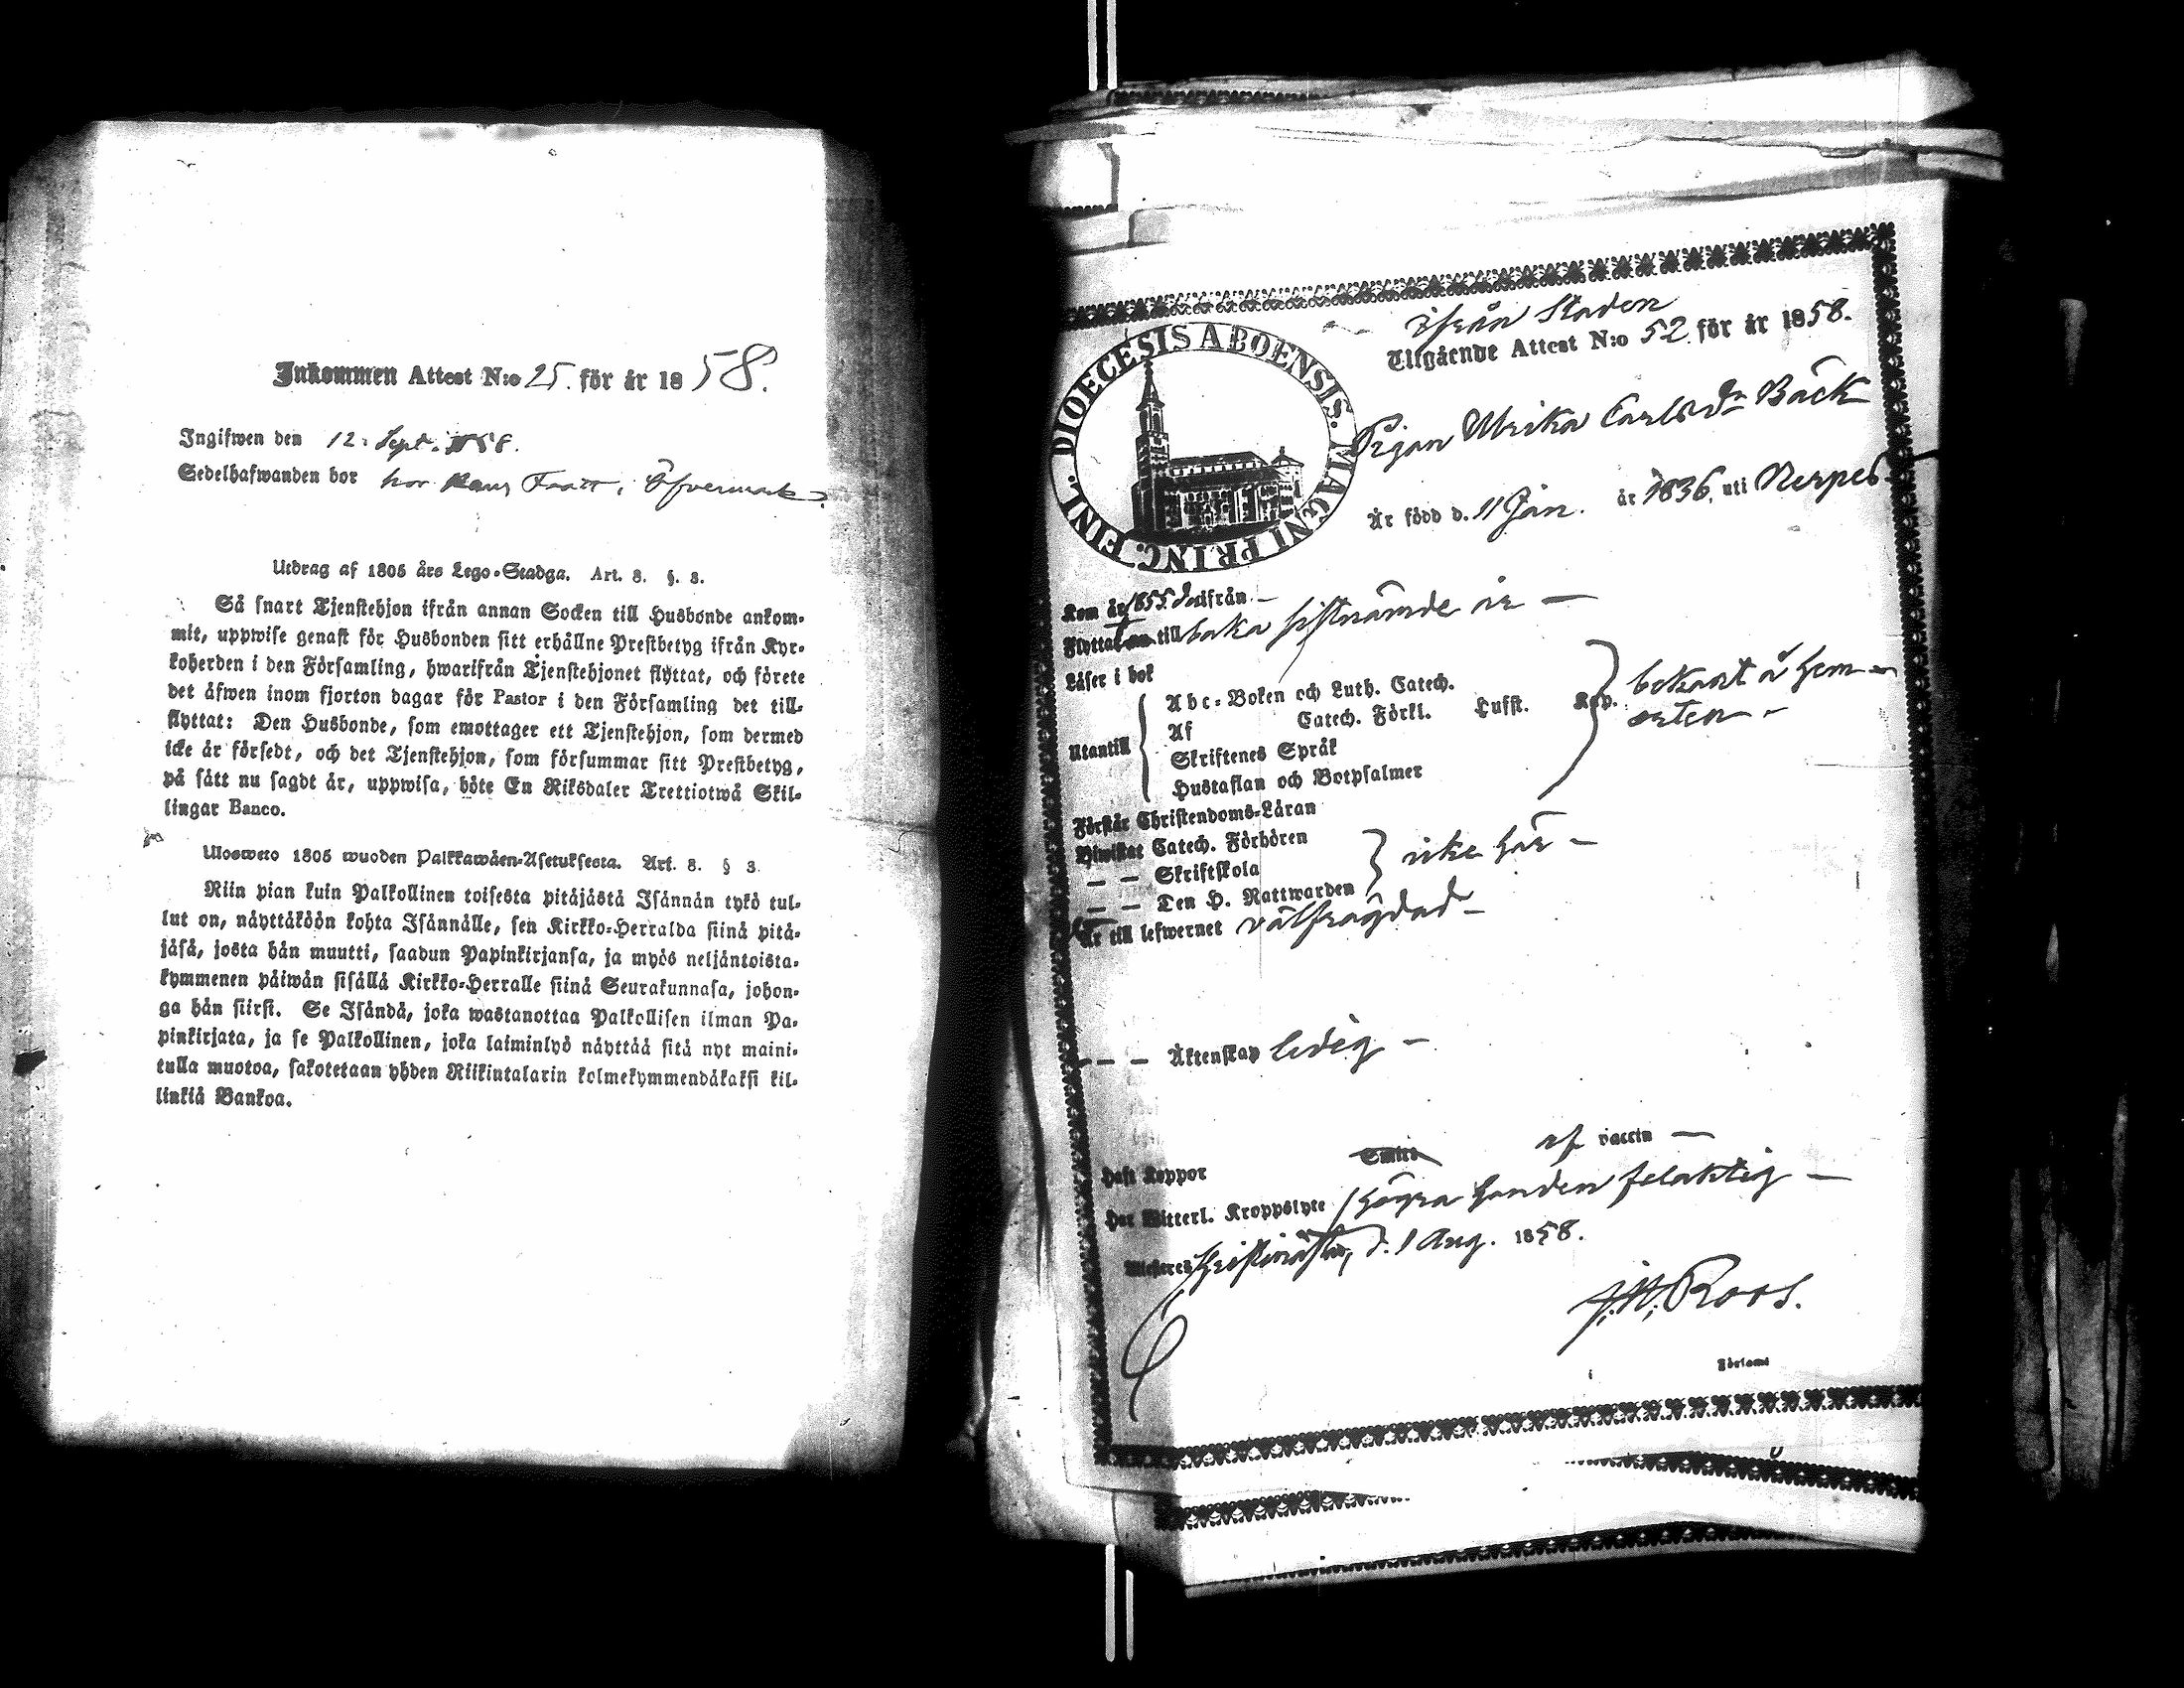 Inkommen Attest N:o 25. för år 1858.
Ingifwen den 12 Sept. 1858.
Sedelhafwanden bor hos Öfvermark
Utdrag af 1805 års Lego-Stadga. Art. 8. §. 3.
Så snart Tjenstehjon ifrån annan Socken till Husbonde ankom-
mit, uppwise genast för Husbonden sitt erhållne Prestbetyg ifrån Kyr-
koherden i den Församling, hwarifrån Tjenstehjonet flyttat, och förete
det äfwen inom fjorton dagar för Pastor i den Församling det till-
flyttat: Den Husbonde, som emottager ett Tjenstehjon, som dermed
icke är försedt, och det Tjenstehjon, som försummar sitt Prestbetyg,
på sätt nu sagdt är, uppwisa, böte En Riksdaler Trettiotwå Skil-
lingar Banco.
Ulosweto 1805 wuoden Palkkawäen-Asetuksesta. Art. 8. § 3.
Niin pian kuin Palkollinen toisesta pitäjästä Isännän tykö tul-
lut on, näyttäköön kohta Isännälle, sen Kirkko-Herralda siinä pitä-
jäsä, josta hän muutti, saadun Papinkirjansa, ja myös neljäntoista-
kymmenen päiwän sisällä Kirkko-Herralle siinä Seurakunnasa, johon-
ga hän siirsi. Se Isändä, joka wastanottaa Palkollisen ilman Pa-
pinkirjata, ja se Palkollinen, joka laiminlyö näyttää sitä nyt maini-
tulla muotoa, sakotetaan yhden Riikintalarin kolmekymmendäkaksi kil-
linkiä Bankoa.
DIOECESIS ABOENSIS. MAGNI PRINC. FINL.
ifrån Staden
Utgående Attest N:o 52 för år 1858.
Pigan Ulrika Carlsdr Bäck
Är född d. 11 Jan. år 1836, uti Nerpes
Kom år 1855 ifrån
Flyttat till baka sistnämde år
Läser i bok
Utantill
Abc-Boken och Luth. Catech.
Af Catech. Förkl. Hufst. Kap.
Skriftenes Språk
Hustaflan och Botpsalmer
bekant å hem-
orten
Förstår Christendoms-Läran
Biwistat Catech. Förhören
— — Skriftskola
— — Den H. Nattwarden
icke här
Är till lefwernet välfrägdad
— — — Äktenskap ledig
Haft Koppor Smitt af vaccin
Har Witterl. Kroppslyte högra handen felaktig
Attesteras Kristinæstad, d. 1 Aug. 1858.
J. W. Roos.